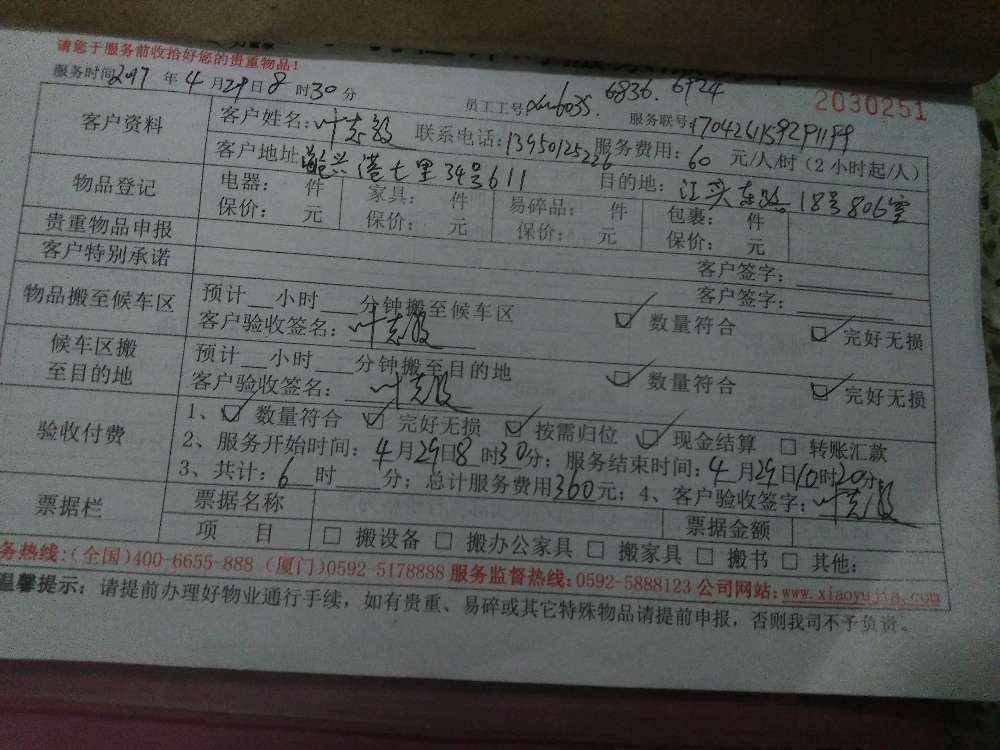 请您于服务前收拾好您的贵重物品！
服务时间2017年4月29日8时30分
员工工号 6836. 6924
2030251
服务联号:
客户资料
客户姓名:叶志毅 联系电话:13950125226 服务费用:60元/人/时(2小时起/人)
客户地址 兴港七里34号611 目的地:江头东路18号806室
物品登记
电器: 件 家具: 件 易碎品: 件 包裹: 件
保价: 元 保价: 元 保价: 元 保价: 元
贵重物品申报 客户签字:
客户特别承诺 客户签字:
物品搬至候车区
预计__小时___分钟搬至候车区 ☑ 数量符合 ☑ 完好无损
客户验收签名:叶志毅
候车区搬至目的地
预计__小时___分钟搬至目的地 ☑ 数量符合 ☑ 完好无损
客户验收签名:叶志毅
验收付费
1、☑ 数量符合 ☑ 完好无损 ☑ 按需归位 ☑ 现金结算 □ 转账汇款
2、服务开始时间:4月29日8时30分;服务结束时间:4月29日10时20分
3、共计:6时___分;总计服务费用360元;4、客户验收签字:叶志毅
票据栏
票据名称 票据金额
项 目 □ 搬设备 □ 搬办公家具 □ 搬家具 □ 搬书 □ 其他:
务热线:(全国)400-6655-888 (厦门)0592-5178888 服务监督热线:0592-5888123 公司网站:www.xiaoyujia.com
温馨提示:请提前办理好物业通行手续,如有贵重、易碎或其它特殊物品请提前申报,否则我司不予负责。